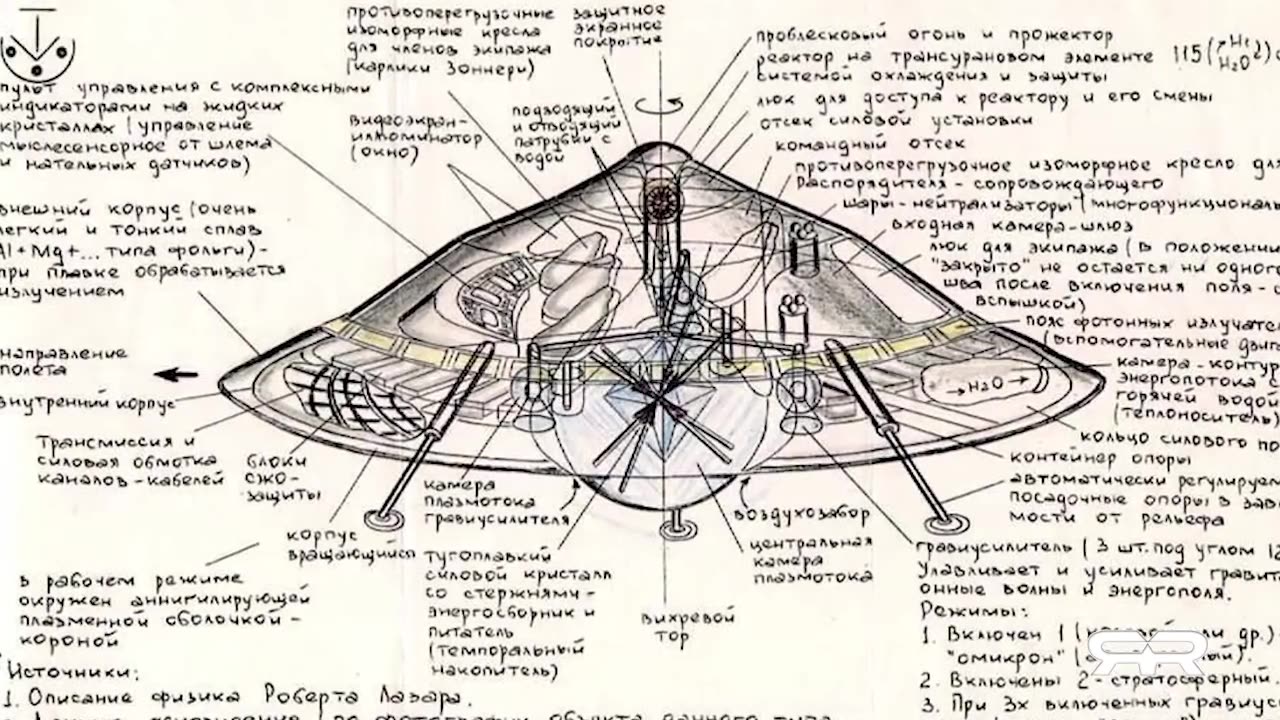 противоперегрузочные
изоморфные кресла
для членов экипажа
(карлики Зоннери)
защитное
экранное
покрытие
проблесковый огонь и прожектор
реактор на трансурановом элементе 115
системой охлаждения и защиты
люк для доступа к реактору и его смены
отсек силовой установки
командный отсек
противоперегрузочное изоморфное кресло для
распорядителя - сопровождающего
шары-нейтрализаторы (многофункциональ
входная камера-шлюз
люк для экипажа (в положении
"закрыто" не остается ни одного
шва после включения поля-с
вспышкой)
пояс фотонных излучате
(вспомогательные двиг
камера-контур
энергопотока с
горячей водой
(теплоноситель)
кольцо силового по
контейнер опоры
автоматически регулируем
посадочные опоры в зав
мости от рельефа
пульт управления с комплексными
индикаторами на жидких
кристаллах (управление
мыслесенсорное от шлема
и нательных датчиков)
видеоэкран-
иллюминатор
(окно)
подводящий
и отводящий
патрубки с
водой
внешний корпус (очень
легкий и тонкий сплав
Al+Mg+... типа фольги)-
при плавке обрабатывается
излучением
направление
полета
внутренний корпус
→H2O→
трансмиссия и
силовая обмотка
каналов-кабелей
блоки
СЖО-
защиты
корпус
вращающийся
камера
плазмотока
гравиусилителя
воздухозабор
центральная
камера
плазмотока
в рабочем режиме
окружен аннигилирующей
плазменной оболочкой-
короной
тугоплавкий
силовой кристалл
со стержнями-
энергосборник и
питатель
(темпоральный
накопитель)
вихревой
тор
гравиусилитель (3 шт. под углом 12
Улавливает и усиливает гравит
онные волны и энергополя.
Режимы:
1. Включен 1 ( др.)
"омикрон"
2. Включены 2 - стратосферный.
3. При 3х включенных гравиус
Источники:
1. Описание физика Роберта Лазара.
RR